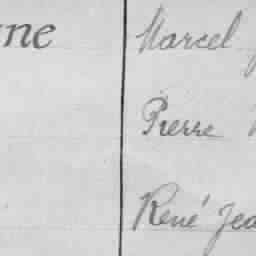 ne
Marcel
Pierre
René Jea